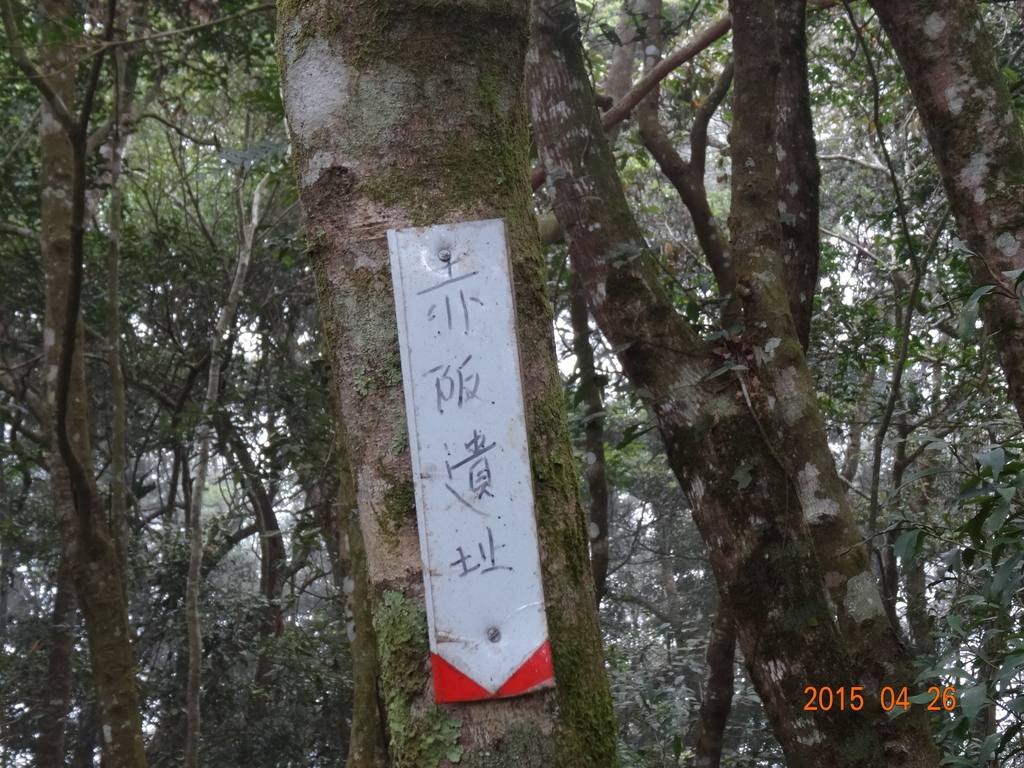 赤阪遺址
2015 04 26